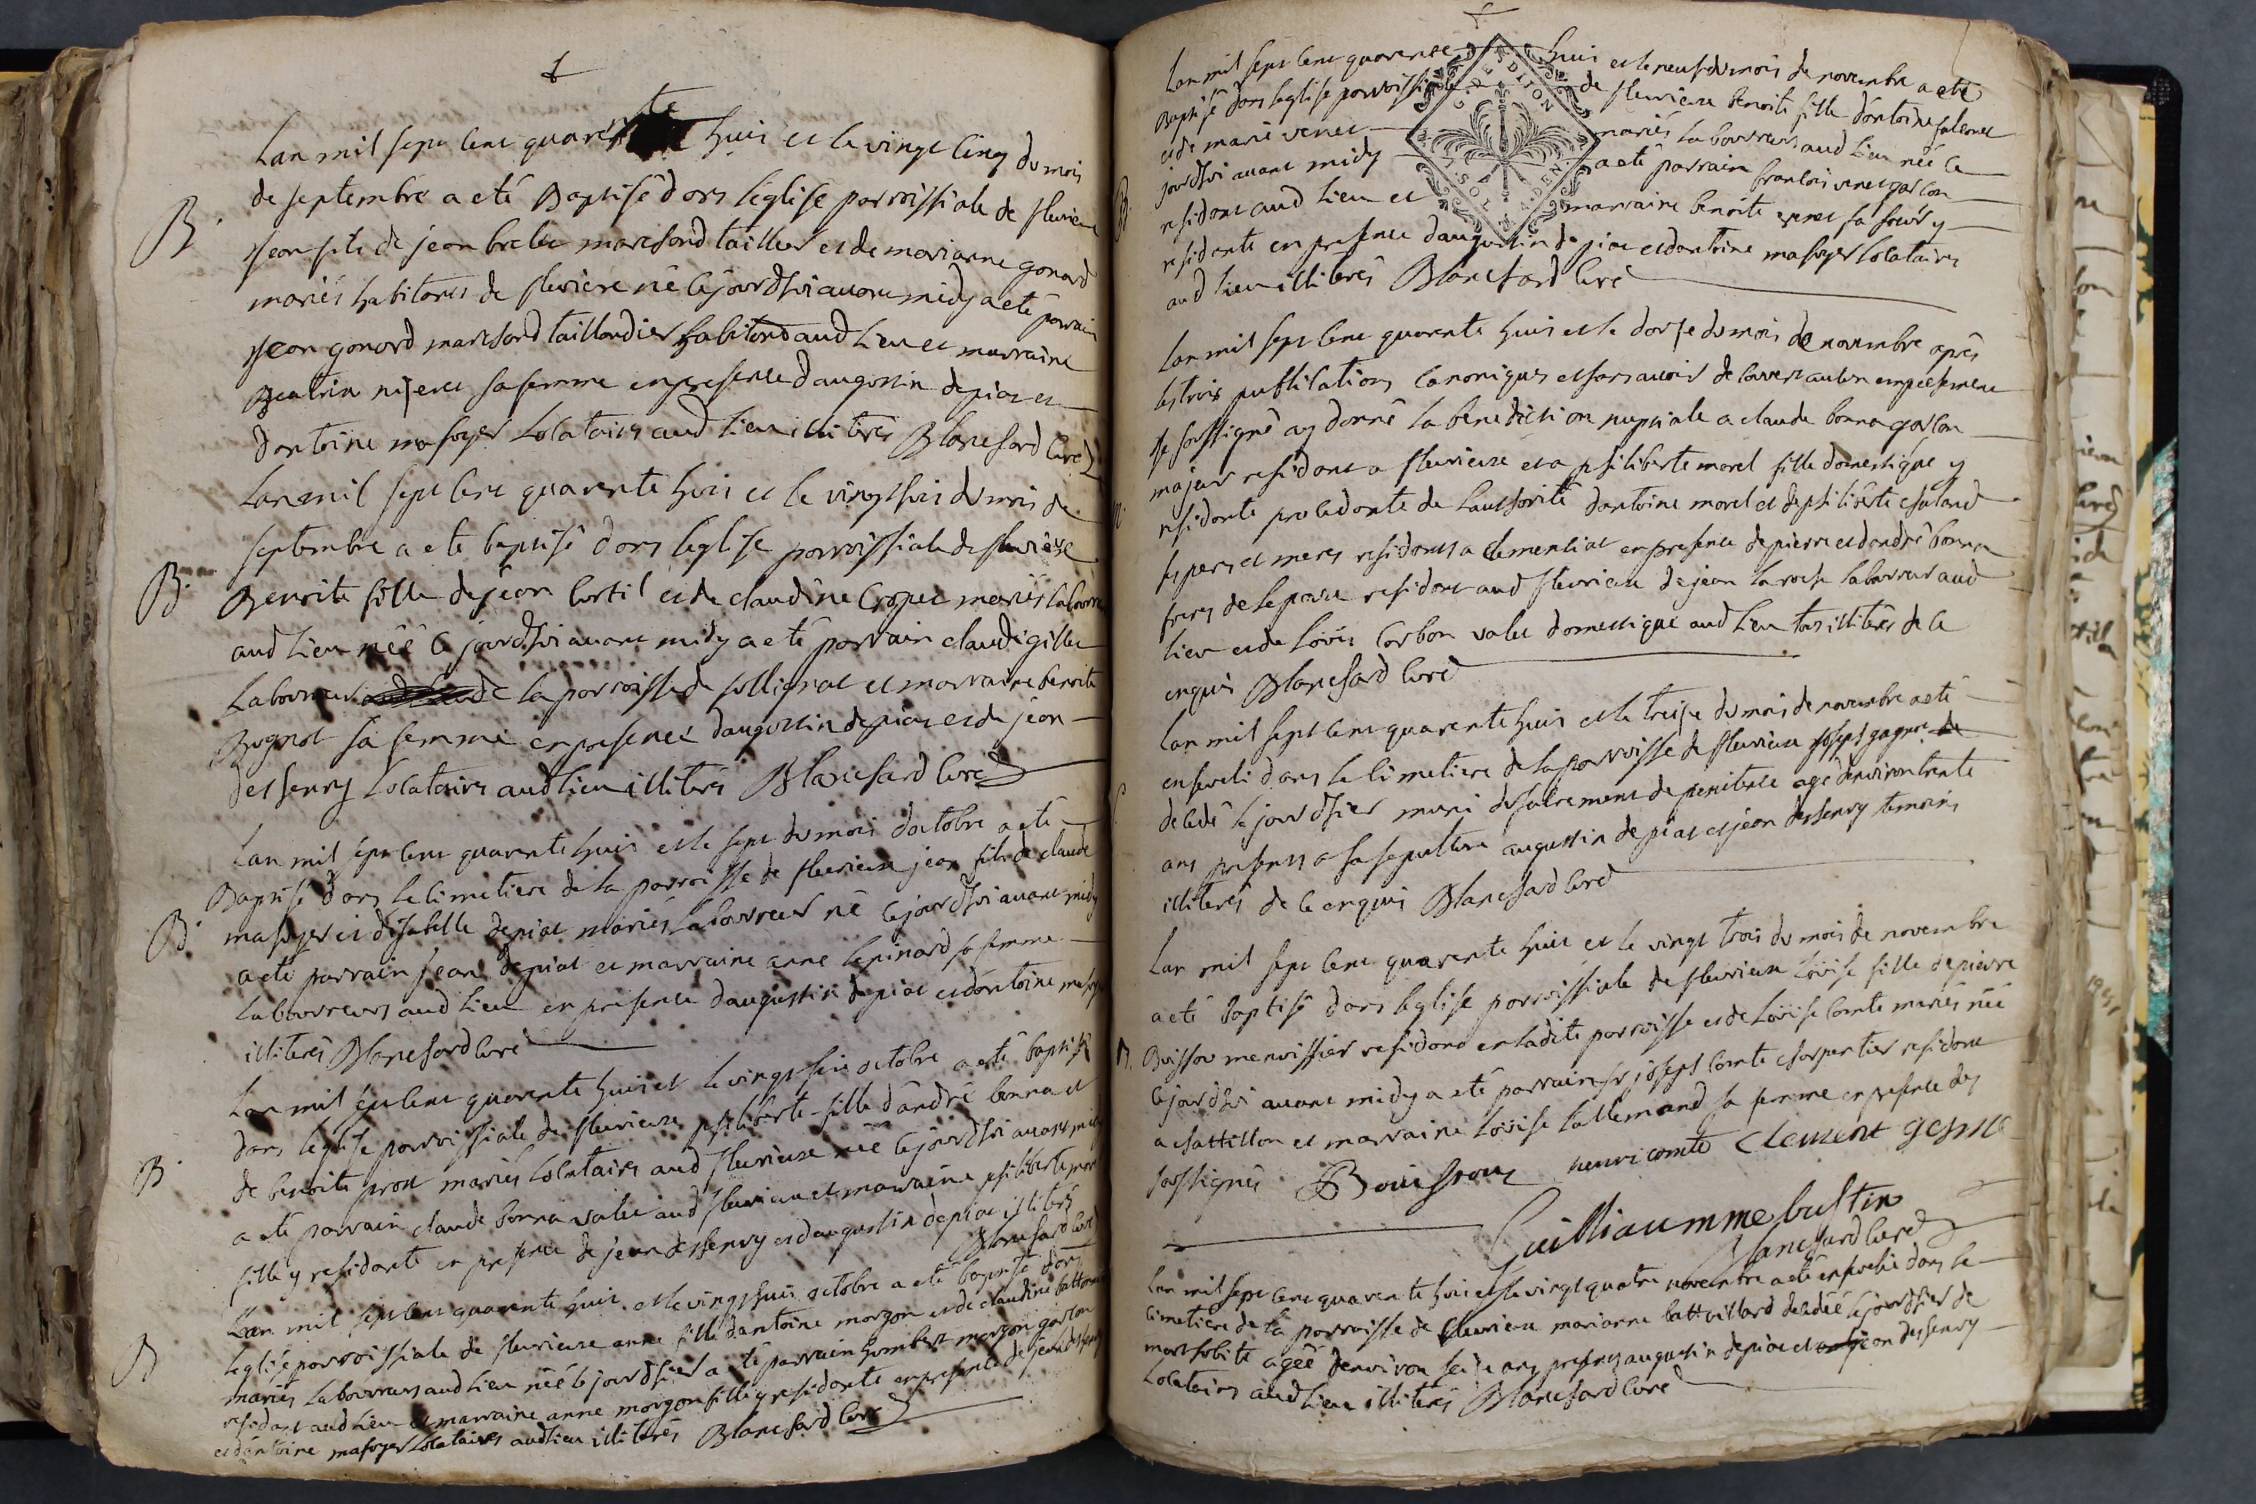 Lan mil sept cent quarente huit et le vingt cinq du mois
de septembre a eté Baptisé dans leglise parroissiale de fleurieu
B. jean fils de jean brelet marchand tailleur et de marianne gonard
mariés habitants de flurieve né ce jourdhui avant midy a eté parrain
jean gonard marchand taillandier habitand aud lieu et marraine
sa femme en presence daugustin depiat et
dantoine masoyer Locataires aud lieu illiterés Blanchard Curé
Lan mil sept cent quarente huit et le vingt huit du mois de
septembre a eté baptisé dans leglise parroissiale de
B. Benoite fille de jean Cortil et de claudine Cropet mariés
aud Lieu néé ce jourdhui avant midy a eté parrain claude gillet
Laboureur de la parroisse de sullignat et marraine benoite
Bugnot sa femme en presence daugustin depiat et de jean
dessenry Locataires aud lieu illiterés Blanchard Curé
Lan mil sept cent quarente huit et le sept du mois doctobre a eté
Baptisé dans le cimetiere de la parroisse de fleurieux jean fils de claude
B. masoyer et disabelle depiat mariés Laboureur né ce jourdhui avant midy
a eté parrain jean depiat et marraine anne lepinard sa femme
Laboureurs aud Lieu en presence daugustin depiat et dantoine
illiterés Blanchard Curé
Lan mil sept cent quarente huit et le vingt octobre a eté baptisé
dans leglise parroissiale de fleurieux philiberte fille dandré bonna et
B de benoite prost mariés Locataires aud fleurieux néé ce jourdhui avant midy
a eté parrain claude bonna valet aud fleurieu et marraine philiberte
fille y residante en presence de jean dessenry et daugustin depiat illiterés
Blanchard Curé
Lan mil sept cent quarente huit et le vingt huit octobre a eté baptisé dans
B leglise parroissiale de fleurieux anne fille dantoine morgon et de claudine
mariés Laboureurs aud Lieu néé le jourdhier a eté parrain humbert morgon garcon
residant aud Lieu et marraine anne morgon fille y residante en presence de jean dessenry
et dantoine masoyer Locataires aud lieu illiterés Blanchard Curé
Lan mil sept cent quarente huit et le neuf du mois de novembre a eté
Baptisé dans leglise parroissiale de fleurieux Benoite fille dantoine
et de marie venet mariés Laboureurs aud Lieu néé ce
B jourdhui avant midy a eté parrain francois venet garcon
residant aud Lieu et marraine benoite venet sa soeur y
residante en presence daugustin depiat et dantoine masoyer Locataires
aud Lieu illiterés Blanchard Curé
G. DE DIJON
SOL A. DEN.
Lan mil sept cent quarente huit et le doze du mois de novembre apres
les trois publications canoniques et sans avoir decouvert aucun empechement
je soussigné ay donné la benediction nuptiale a claude bonna garcon
majeur residant a fleurieux et a philiberte morel fille domestique y
residante procedante de lauthorité dantoine morel et de philiberte chaland
ses pere et meres residants a clemenciat en presence de pierre et dandré bonna
freres de lepoux residant aud fleurieux de jean la roche laboureur aud
lieu et de Loüis Corbon valet domestique aud Lieu tous illiterés de ce
enquis Blanchard Curé
Lan mil sept cent quarente huit et le treize du mois de novembre a eté
enseveli dans le cimetiere de la parroisse de fleurieux joseph gagne
decedé le jourdhier muni du sacrement de penitence agé denviron trente
ans presents a sa sepulture augustin depiat et jean dessenry temoins
illiterés de ce enquis Blanchard Curé
Lan mil sept cent quarente huit et le vingt trois du mois de novembre
a eté Baptisé dans leglise parroissiale de fleurieux Loüise fille de pierre
B. Buissou menuissier residant en ladite parroisse et de Loüise Comte mariés néé
ce jourdhui avant midy a eté parrain sr joseph Comte charpentier residant
a chattillon et marraine Loüise Lallemand sa femme en presence des
soussignés Bouissoux henri comte Clement
Guilliaumme bustin
Blanchard Curé
Lan mil sept cent quarente huit et le vingt quatre novembre a eté ensevelie dans le
cimetiere de la parroisse de fleurieux marianne battvillard decedéé le jourdhier de
mort subite agéé denviron seize ans presents augustin depiat et jean dessenry
Locataires aud Lieu illiterés Blanchard Curé